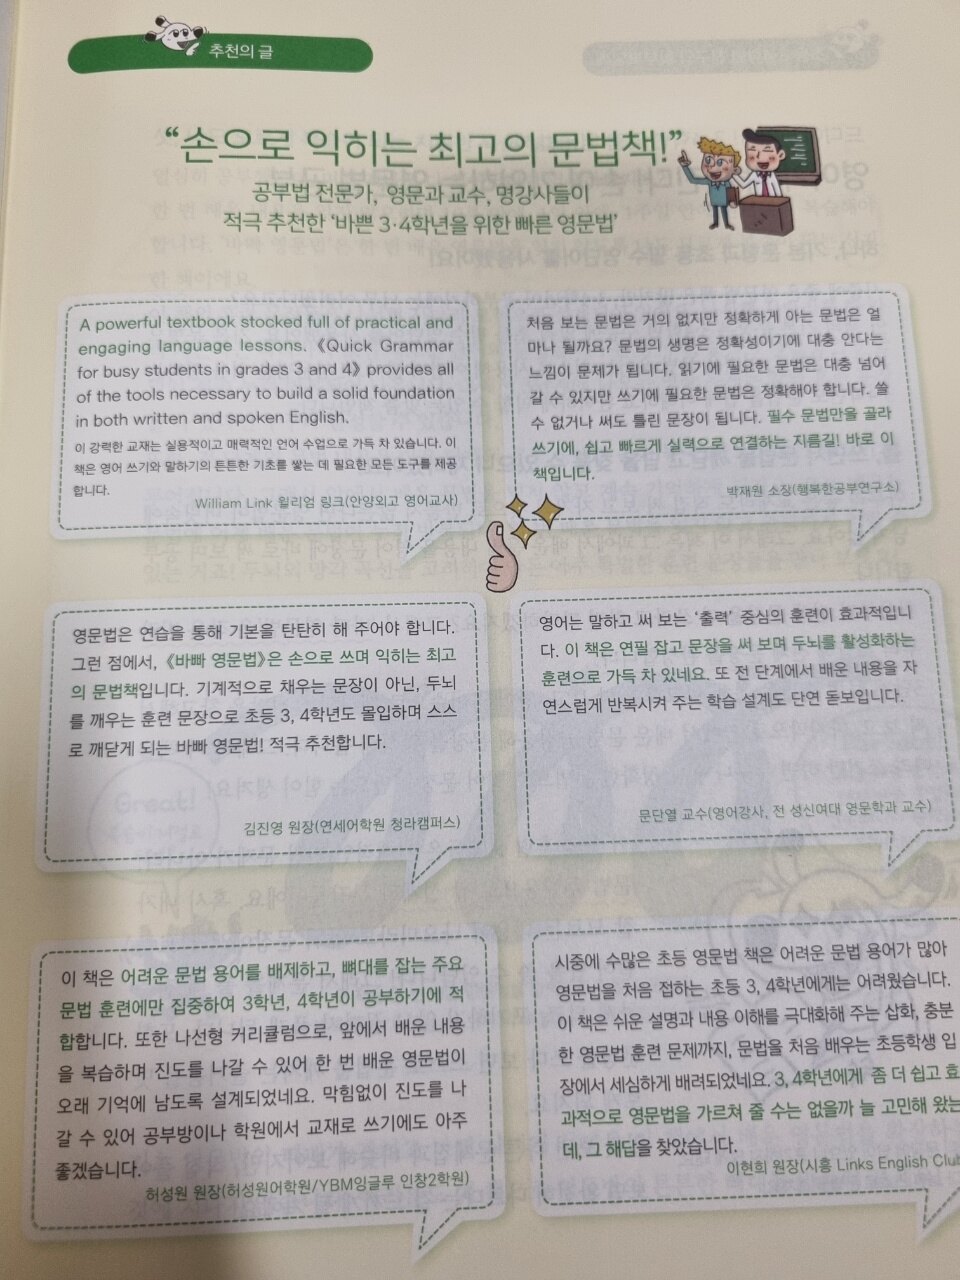 추천의 글
“손으로 익히는 최고의 문법책!”
공부법 전문가, 영문과 교수, 명강사들이
적극 추천한 ‘바쁜 3·4학년을 위한 빠른 영문법’
A powerful textbook stocked full of practical and
engaging language lessons. 《Quick Grammar
for busy students in grades 3 and 4》 provides all
of the tools necessary to build a solid foundation
in both written and spoken English.
이 강력한 교재는 실용적이고 매력적인 언어 수업으로 가득 차 있습니다. 이
책은 영어 쓰기와 말하기의 튼튼한 기초를 쌓는 데 필요한 모든 도구를 제공
합니다.
William Link 윌리엄 링크(안양외고 영어교사)
처음 보는 문법은 거의 없지만 정확하게 아는 문법은 얼
마나 될까요? 문법의 생명은 정확성이기에 대충 안다는
느낌이 문제가 됩니다. 읽기에 필요한 문법은 대충 넘어
갈 수 있지만 쓰기에 필요한 문법은 정확해야 합니다. 쓸
수 없거나 써도 틀린 문장이 됩니다. 필수 문법만을 골라
쓰기에, 쉽고 빠르게 실력으로 연결하는 지름길! 바로 이
책입니다.
박재원 소장(행복한공부연구소)
영문법은 연습을 통해 기본을 탄탄히 해 주어야 합니다.
그런 점에서, 《바빠 영문법》은 손으로 쓰며 익히는 최고
의 문법책입니다. 기계적으로 채우는 문장이 아닌, 두뇌
를 깨우는 훈련 문장으로 초등 3, 4학년도 몰입하며 스스
로 깨닫게 되는 바빠 영문법! 적극 추천합니다.
김진영 원장(연세어학원 청라캠퍼스)
영어는 말하고 써 보는 ‘출력’ 중심의 훈련이 효과적입니
다. 이 책은 연필 잡고 문장을 써 보며 두뇌를 활성화하는
훈련으로 가득 차 있네요. 또 전 단계에서 배운 내용을 자
연스럽게 반복시켜 주는 학습 설계도 단연 돋보입니다.
문단열 교수(영어강사, 전 성신여대 영문학과 교수)
이 책은 어려운 문법 용어를 배제하고, 뼈대를 잡는 주요
문법 훈련에만 집중하여 3학년, 4학년이 공부하기에 적
합합니다. 또한 나선형 커리큘럼으로, 앞에서 배운 내용
을 복습하며 진도를 나갈 수 있어 한 번 배운 영문법이
오래 기억에 남도록 설계되었네요. 막힘없이 진도를 나
갈 수 있어 공부방이나 학원에서 교재로 쓰기에도 아주
좋겠습니다.
허성원 원장(허성원어학원/YBM잉글루 인창2학원)
시중에 수많은 초등 영문법 책은 어려운 문법 용어가 많아
영문법을 처음 접하는 초등 3, 4학년에게는 어려웠습니다.
이 책은 쉬운 설명과 내용 이해를 극대화해 주는 삽화, 충분
한 영문법 훈련 문제까지, 문법을 처음 배우는 초등학생 입
장에서 세심하게 배려되었네요. 3, 4학년에게 좀 더 쉽고 효
과적으로 영문법을 가르쳐 줄 수는 없을까 늘 고민해 왔는
데, 그 해답을 찾았습니다.
이현희 원장(시흥 Links English Club